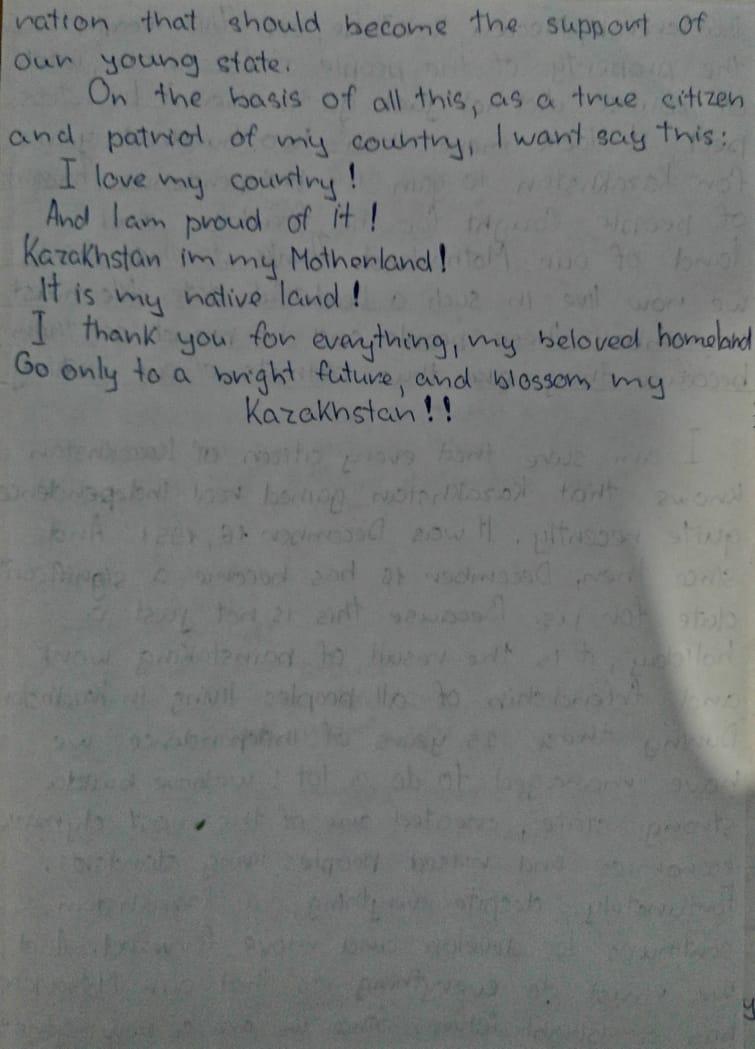 ration that should become the support of
our young state.
On the basis of all this, as a true citizen
and patriot of my country, I want say this:
I love my country!
And I am proud of it!
Kazakhstan im my Motherland!
It is my native land!
I thank you for everything, my beloved homeland
Go only to a bright future, and blossom my
Kazakhstan!!